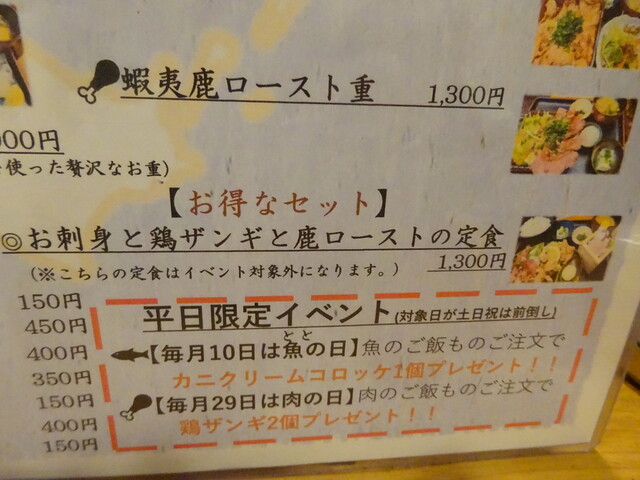 蝦夷鹿ロースト重 1,300円
000円
使った贅沢なお重)
【お得なセット】
◎お刺身と鶏ザンギと鹿ローストの定食
(※こちらの定食はイベント対象外になります。) 1,300円
150円
450円
400円
350円
150円
400円
150円
平日限定イベント(対象日が土日祝は前倒し)
とと
【毎月10日は魚の日】魚のご飯ものご注文で
カニクリームコロッケ1個プレゼント!!
【毎月29日は肉の日】肉のご飯ものご注文で
鶏ザンギ2個プレゼント!!